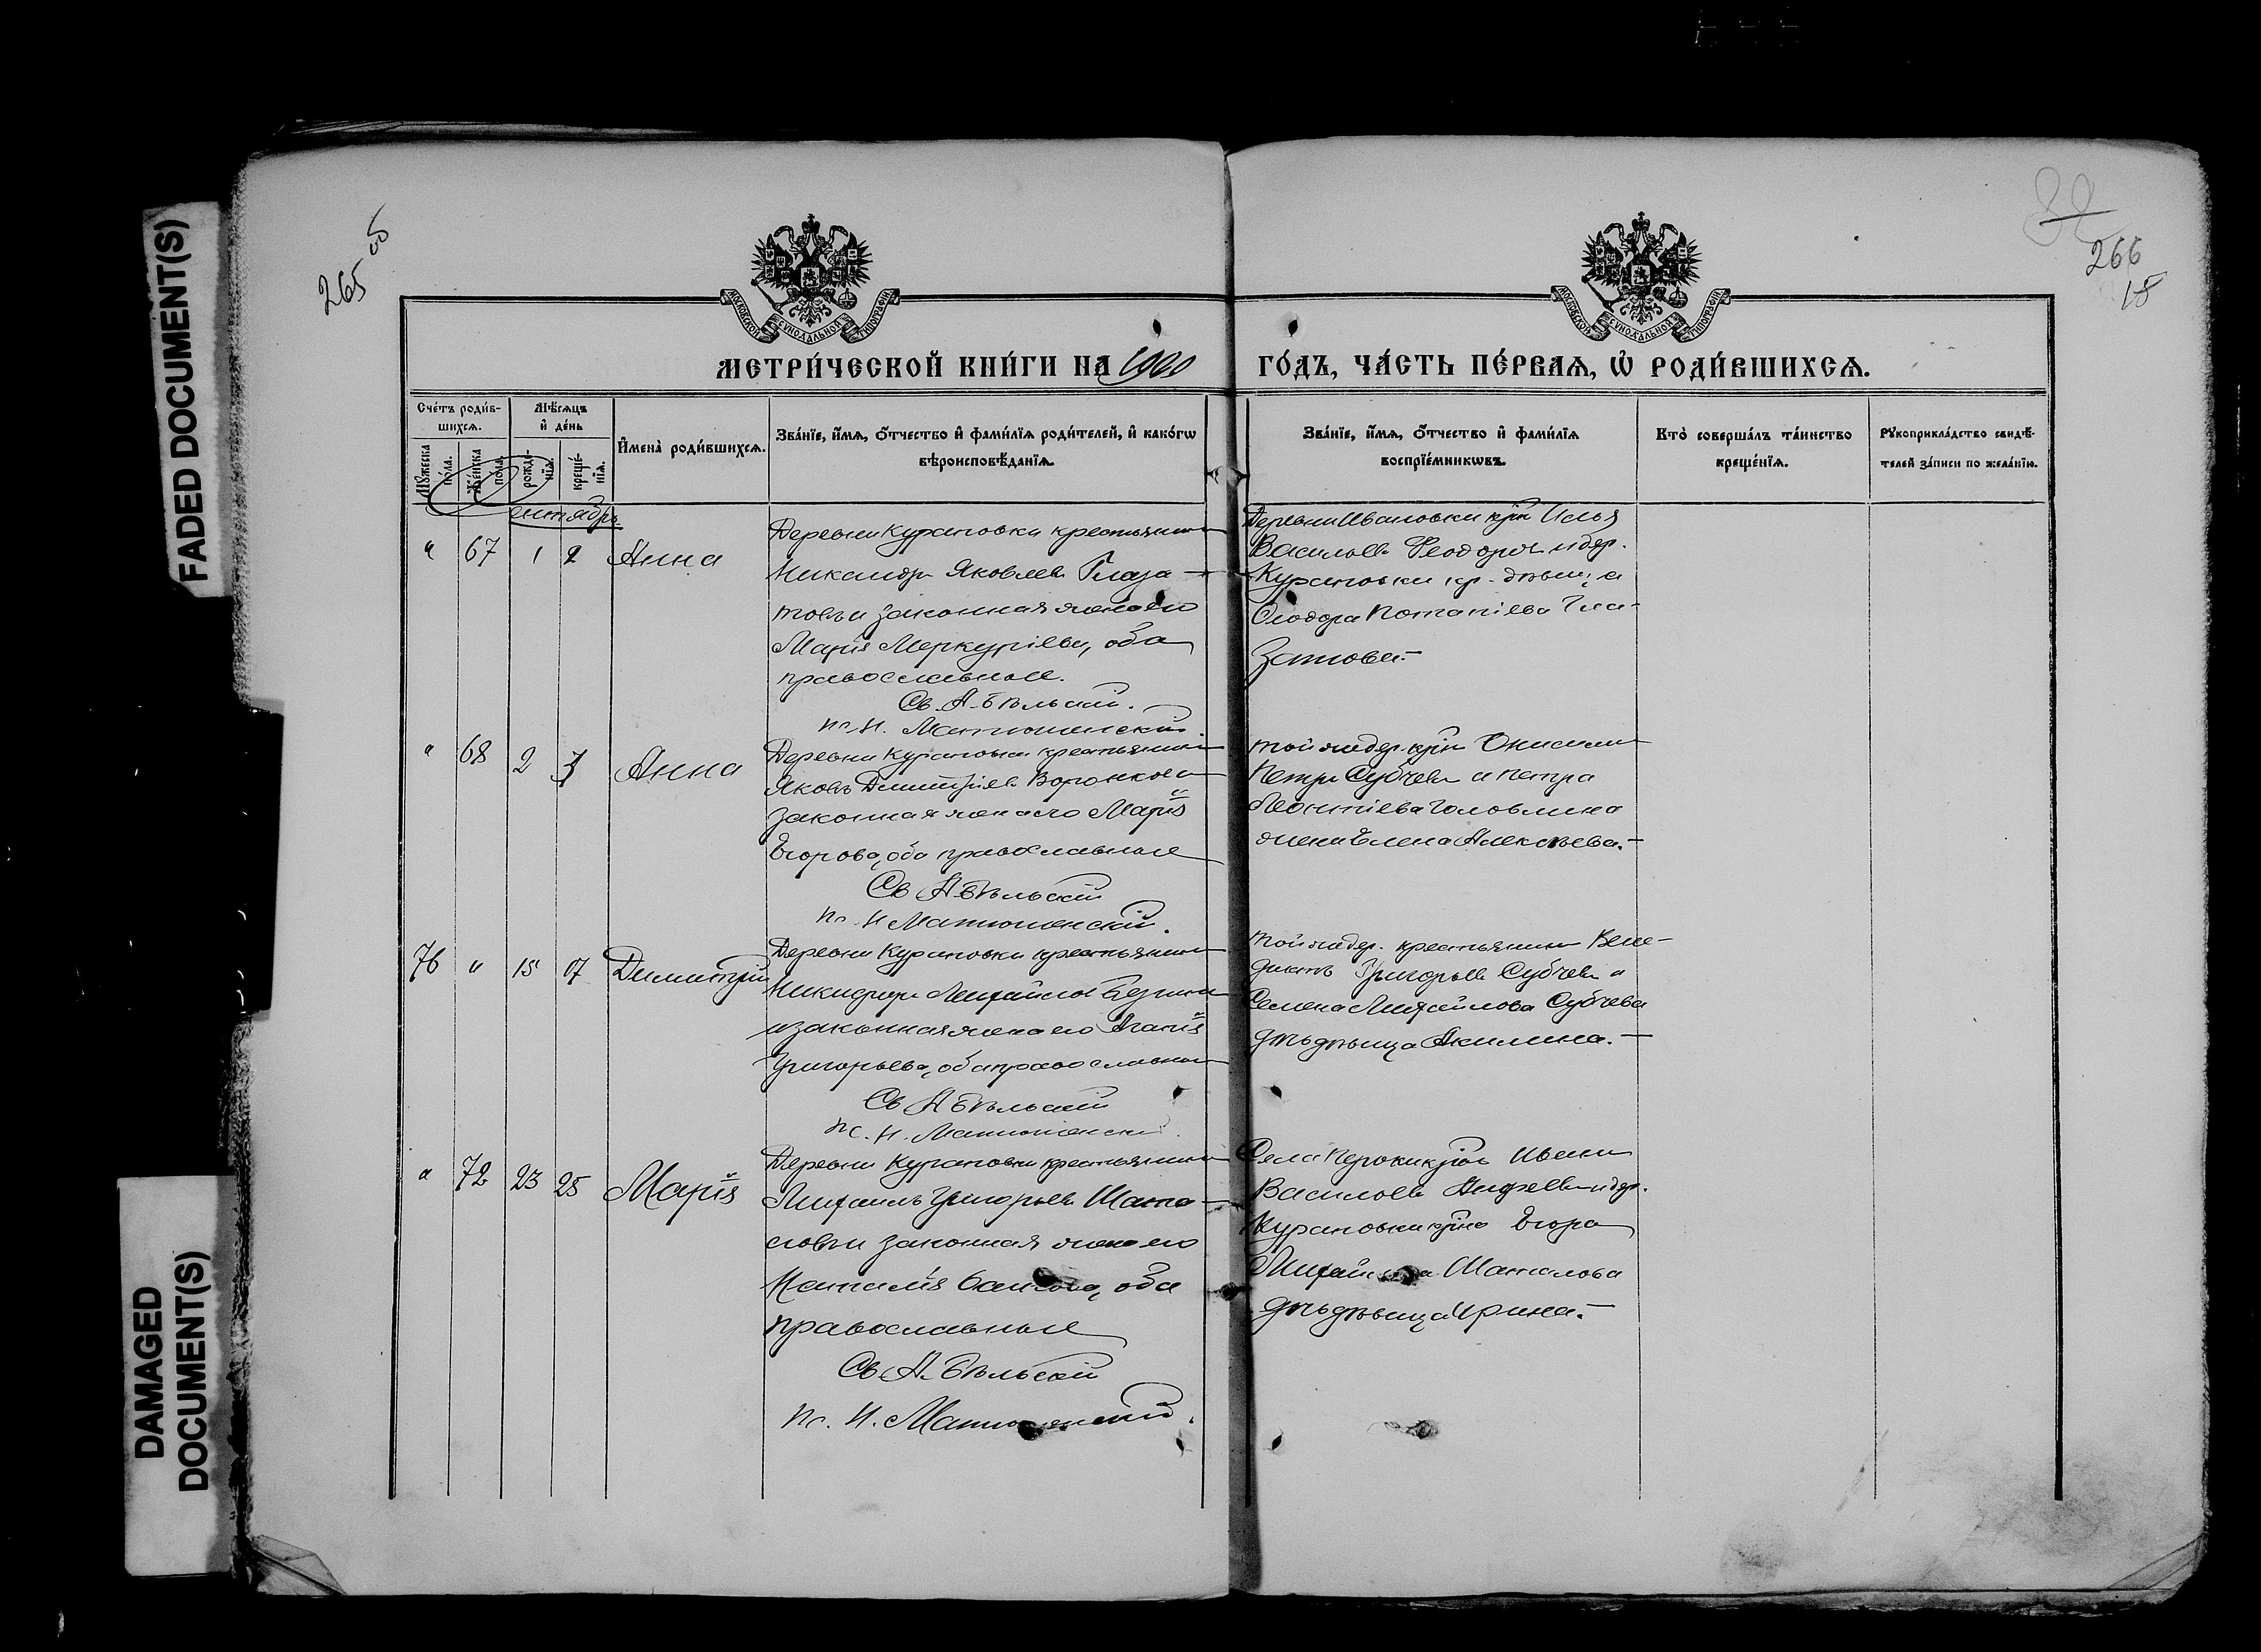 FADED DOCUMENT(S)
DAMAGED
DOCUMENT(S)
265 об
266
18
МОСКОВСКОЙ СУНОДАЛЬНОЙ ТИПОГРАФІИ
МОСКОВСКОЙ СУНОДАЛЬНОЙ ТИПОГРАФІИ
МЕТРИ́ЧЕСКОЙ КНИ́ГИ НА 1900 ГО́ДЪ, ЧА́СТЬ ПЕ́РВАѦ, Ѡ҆ РОДИ́ВШИХСѦ.
Сче́тъ роди́в-
шихсѧ.
Мꙋ́жеска
по́ла.
Же́нска
по́ла.
Мѣ́сѧцъ
и҆ де́нь
рожде́-
нїѧ.
креще́-
нїѧ.
И҆мена̀ роди́вшихсѧ.
Зва́нїе, и҆́мѧ, ѻ҆́тчество и҆ фами́лїѧ роди́телей, и҆ како́гѡ
вѣроисповѣ́данїѧ.
Зва́нїе, и҆́мѧ, ѻ҆́тчество и҆ фами́лїѧ
воспрїе́мникѡвъ.
Кто̀ соверша́лъ та́инство
креще́нїѧ.
Рꙋкоприкла́дство свидѣ́-
телей за́писи по жела́нїю.
Сентябрь
" 67 1 2 Анна
Деревни Курановки крестьянинъ
Никандръ Яковлевъ Глаза-
товъ и законная жена его
Марія Меркуріева, оба
православные.
Св. А. Бѣльскій.
Пс. И. Матюшенскій.
Деревни Ивановки кр-нъ Илья
Васильевъ Феодоровъ и дер.
Курановки кр. дѣвица
Феодора Потапіева Гла-
затова.-
" 68 2 3 Анна
Деревни Курановки крестьянинъ
Яковъ Димитріевъ Воронковъ и
законная жена его Марія
Егорова, оба православные
Св А. Бѣльскій
Пс. И Матюшенскій.
той же дер. кр-нъ Онисимъ
Петровъ Субчевъ и Петра
Леонтіева Головлина
жена Елена Алексѣева.-
76 " 15 17 Димитрій
Деревни Курановки крестьянинъ
Никифоръ Михайловъ
и законная жена его
Григорьева, оба православные
Св А Бѣльскій
Пс. И. Матюшенскій.
той же дер. крестьянинъ Вене-
диктъ Григорьевъ Субчевъ и
Семена Михайлова Субчева
дочь дѣвица Акилина.-
" 72 23 25 Марія
Деревни Курановки крестьянинъ
Михаилъ Григорьевъ Шата-
ловъ и законная жена его
Наталія оба
православные
Св А. Бѣльскій
Пс. И. Матюшенскій.
Села кр-нъ Иванъ
Васильевъ Андреевъ и дер.
Курановки кр-на Егора
Михайлова Шаталова
дочь дѣвица Ирина.-